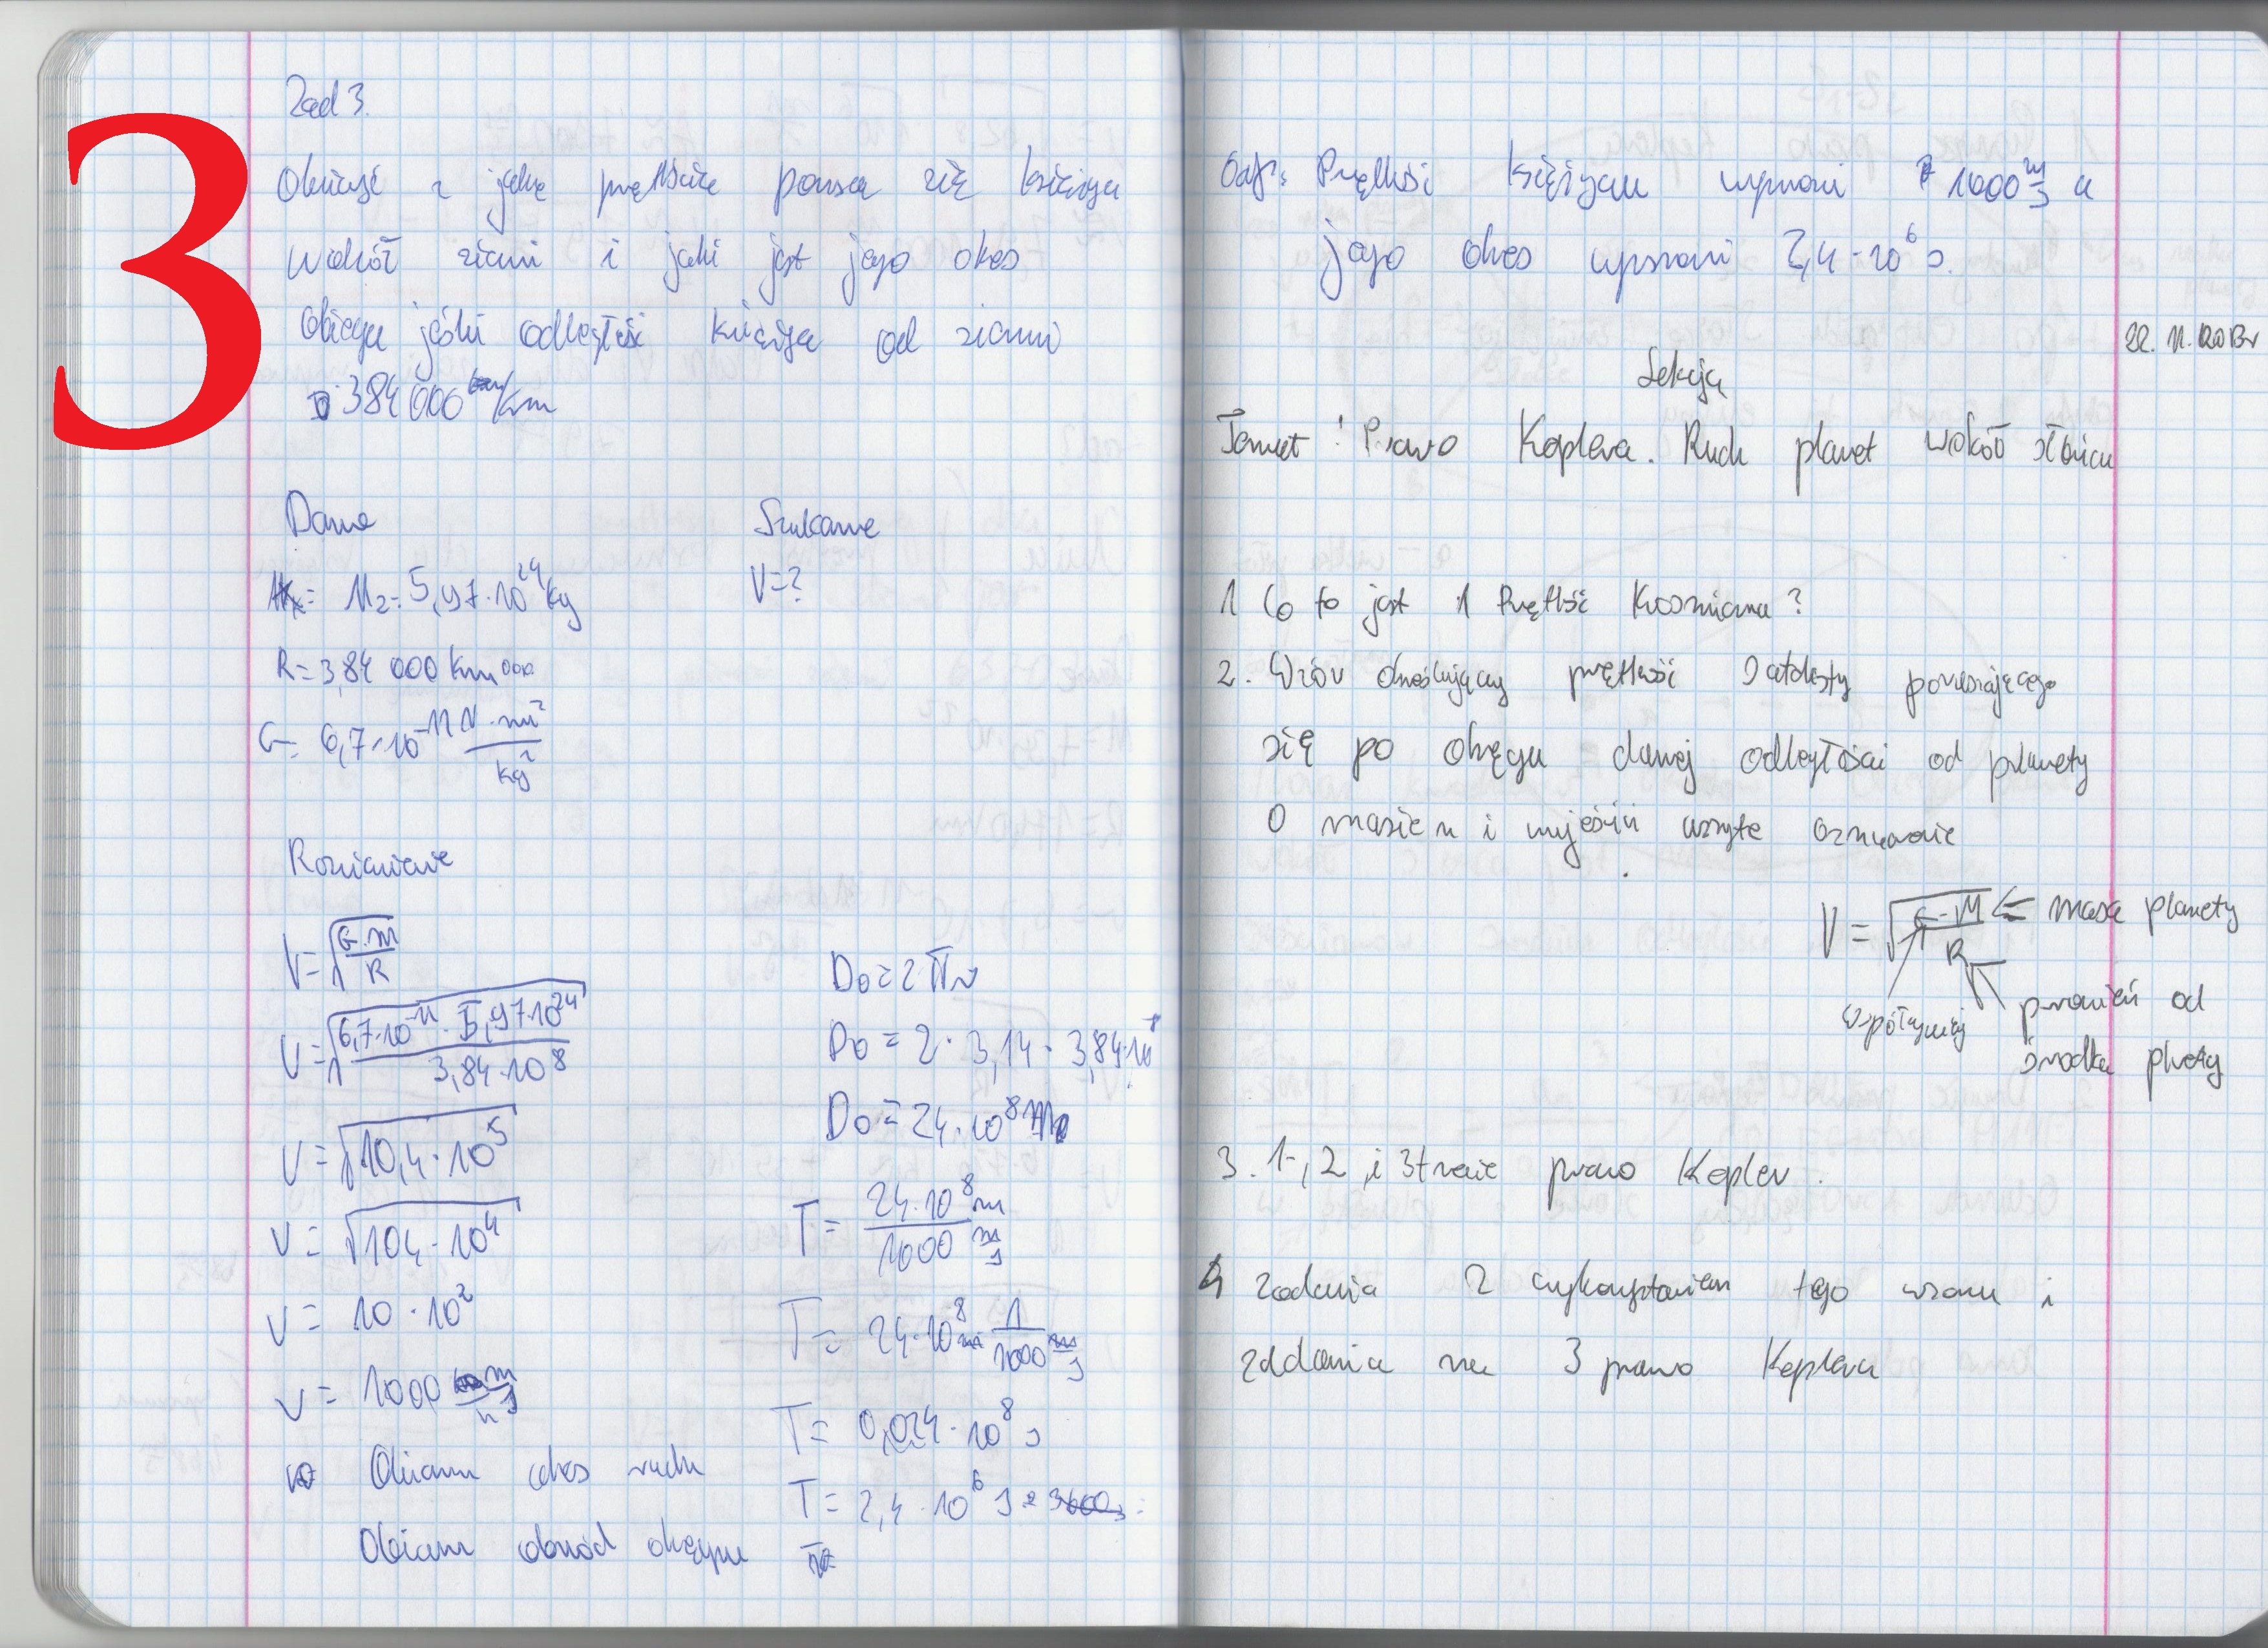 3
Zad 3.
Oblicz z jaką prętkście porusa się księżyca
wokół ziemi i jaki jest jego okes
obiegu jeśli odległość księżyca od ziemi
384 000 km
Dane
Szukane
M₂ = 5,97·10²⁴ kg
V=?
R= 3,84 000 km 000
G= 6,7·10⁻¹¹ N·m²/kg²
Rozwiązanie
V=√(G·m/R)
V=√(6,7·10⁻¹¹·5,97·10²⁴/3,84·10⁸)
V=√10,4·10⁵
V=√104·10⁴
V= 10·10²
V= 1000 m/s
Obicam okes ruchu
Obicam obwód okręgu
Do=2πr
Do = 2·3,14·3,84·10⁸
Do=24·10⁸ m
T= 24·10⁸m/1000 m/s
T= 24·10⁸m·1/1000 m/s
T= 0,024·10⁸ s
T= 2,4·10⁶ s
Odp: Prętkość księżycu wynosi 1000 m/s a
jego okes wynosi 2,4·10⁶ s.
Lekcja
Temat: Prawo Keplera. Ruch planet wokół słońcu
1 Co to jest 1 Prętkść Kosmiczna?
2. Wzór określający prętkość satelity poruszającego
się po okręgu danej odległości od planety
O masie m i wyjaśnić użyte oznaczenie
V = √(G·M/R) ← masa planety
współczynnij
promień od
środka planety
3. 1-, 2, i 3 trzecie prawo Kepler.
4 zadania z wykorzystaniem tego wzoru i
zadania na 3 prawo Keplera